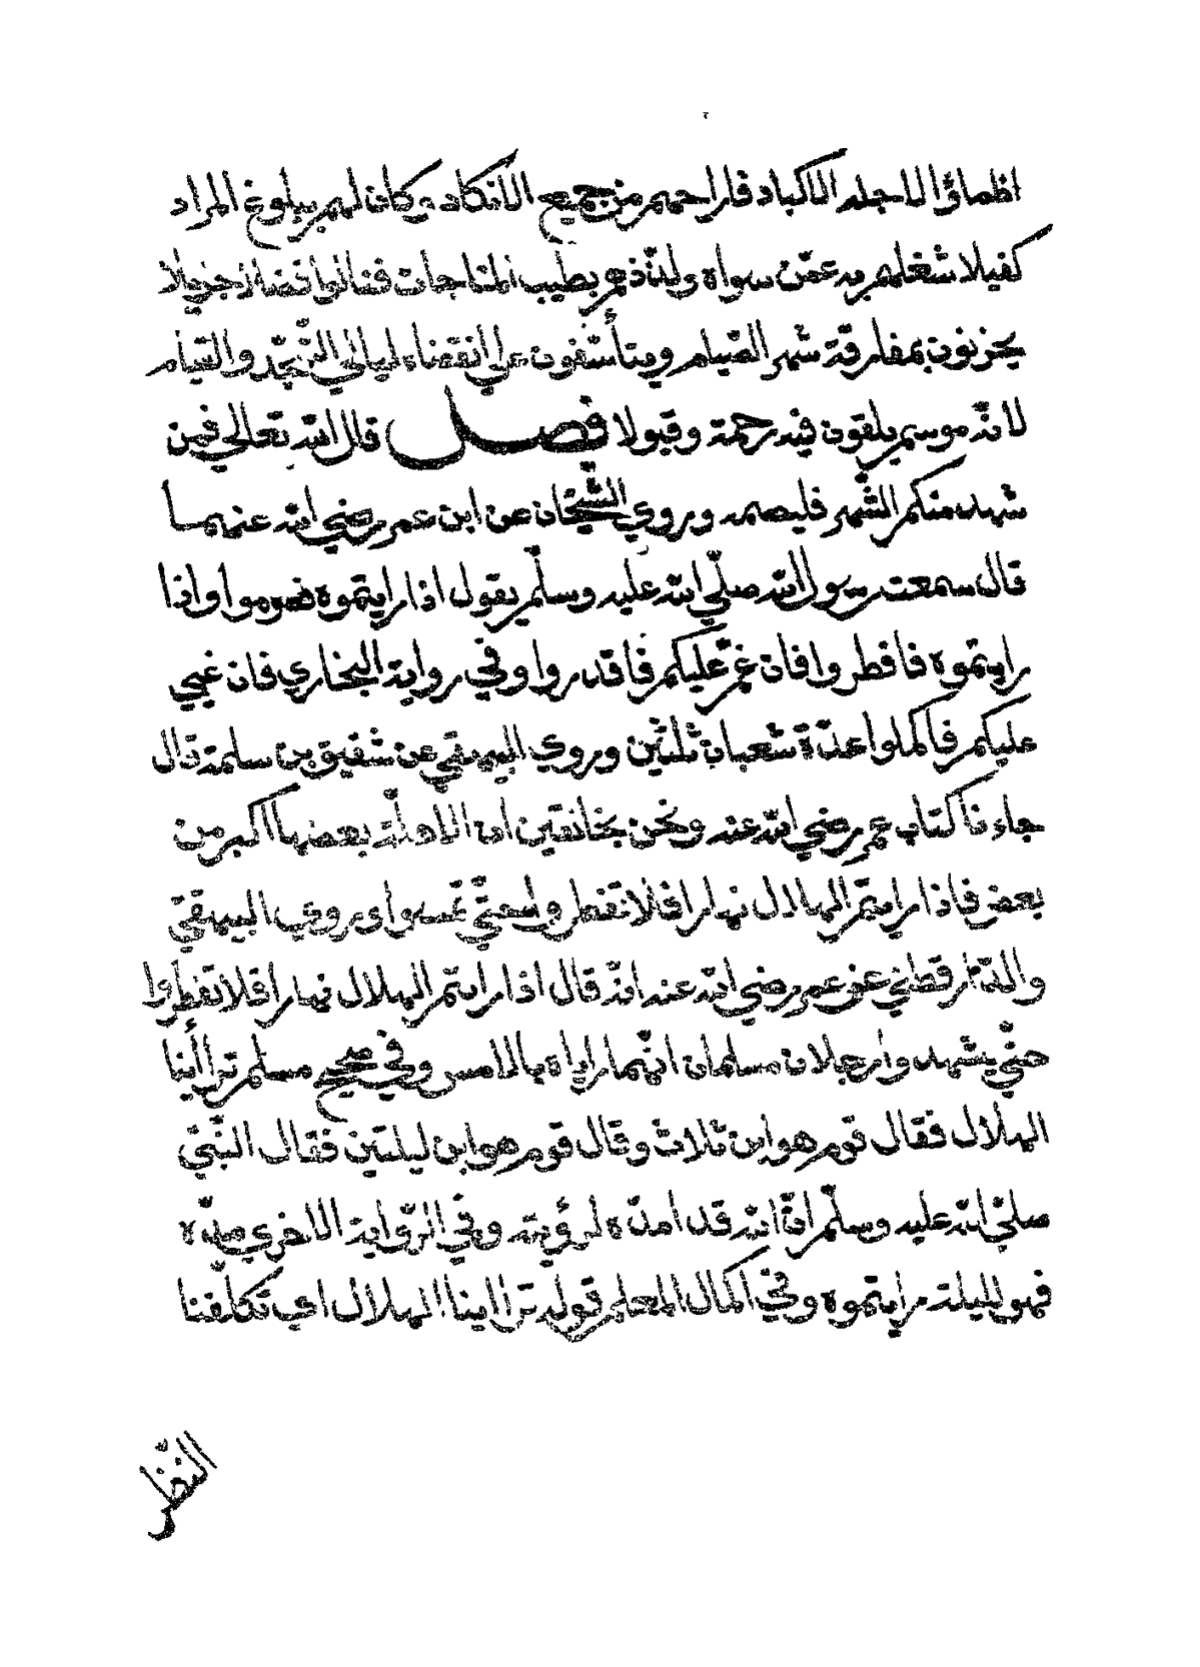 اظمأوا لاجله الاكباد فاراحهم من جميع الانكاد وكان لهم ببلوغ المراد
كفيلا شغلهم به عمّن سواه ولذّذهم بطيب المناجات فنالوا فضلا جزيلا
يحزنون بمفارقة شهر الصّيام ويتأسّفون على انقضاء ليالي التّهجّد والقيام
لانّه موسم يلقون فيه رحمة وقبولا فصل قال الله تعالى فمن
شهد منكم الشّهر فليصمه وروي الشّيخان عن ابن عمر رضي الله عنهما
قال سمعت رسول الله صلّي الله عليه وسلّم يقول اذا رايتموه فصوموا واذا
رايتموه فافطروا فان غمّ عليكم فاقدروا وفي رواية البخاري فان غبي
عليكم فاكملوا عدّة شعبان ثلثين وروي البيهقي عن شقيق بن سلمة قال
جاءنا كتاب عمر رضي الله عنه ونحن بخانقين ان الاهلّة بعضها اكبر من
بعض فاذا رايتم الهلال نهارا فلا تفطروا حتّي تمسوا وروي البيهقيّ
والدّارقطني عن عمر رضي الله عنه انّه قال اذا رايتم الهلال نهارا فلا تفطروا
حتّي يشهد رجلان مسلمان انّهما راياه بالامس وفي صحيح مسلم تراأينا
الهلال فقال قوم هو ابن ثلاث وقال قوم هو ابن ليلتين فقال النّبيّ
صلّي الله عليه وسلّم انّ الله قد امدّه لرؤيته وفي الرّواية الاخري مدّه
فهو لليلة رايتموه وفي اكمال المعلم قوله تراأينا الهلال اي تكلّفنا
النّظر